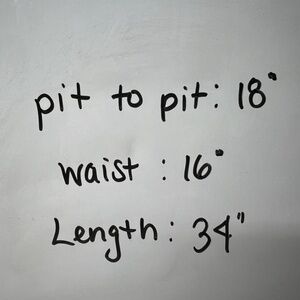 pit to pit: 18"
waist : 16"
Length: 34"